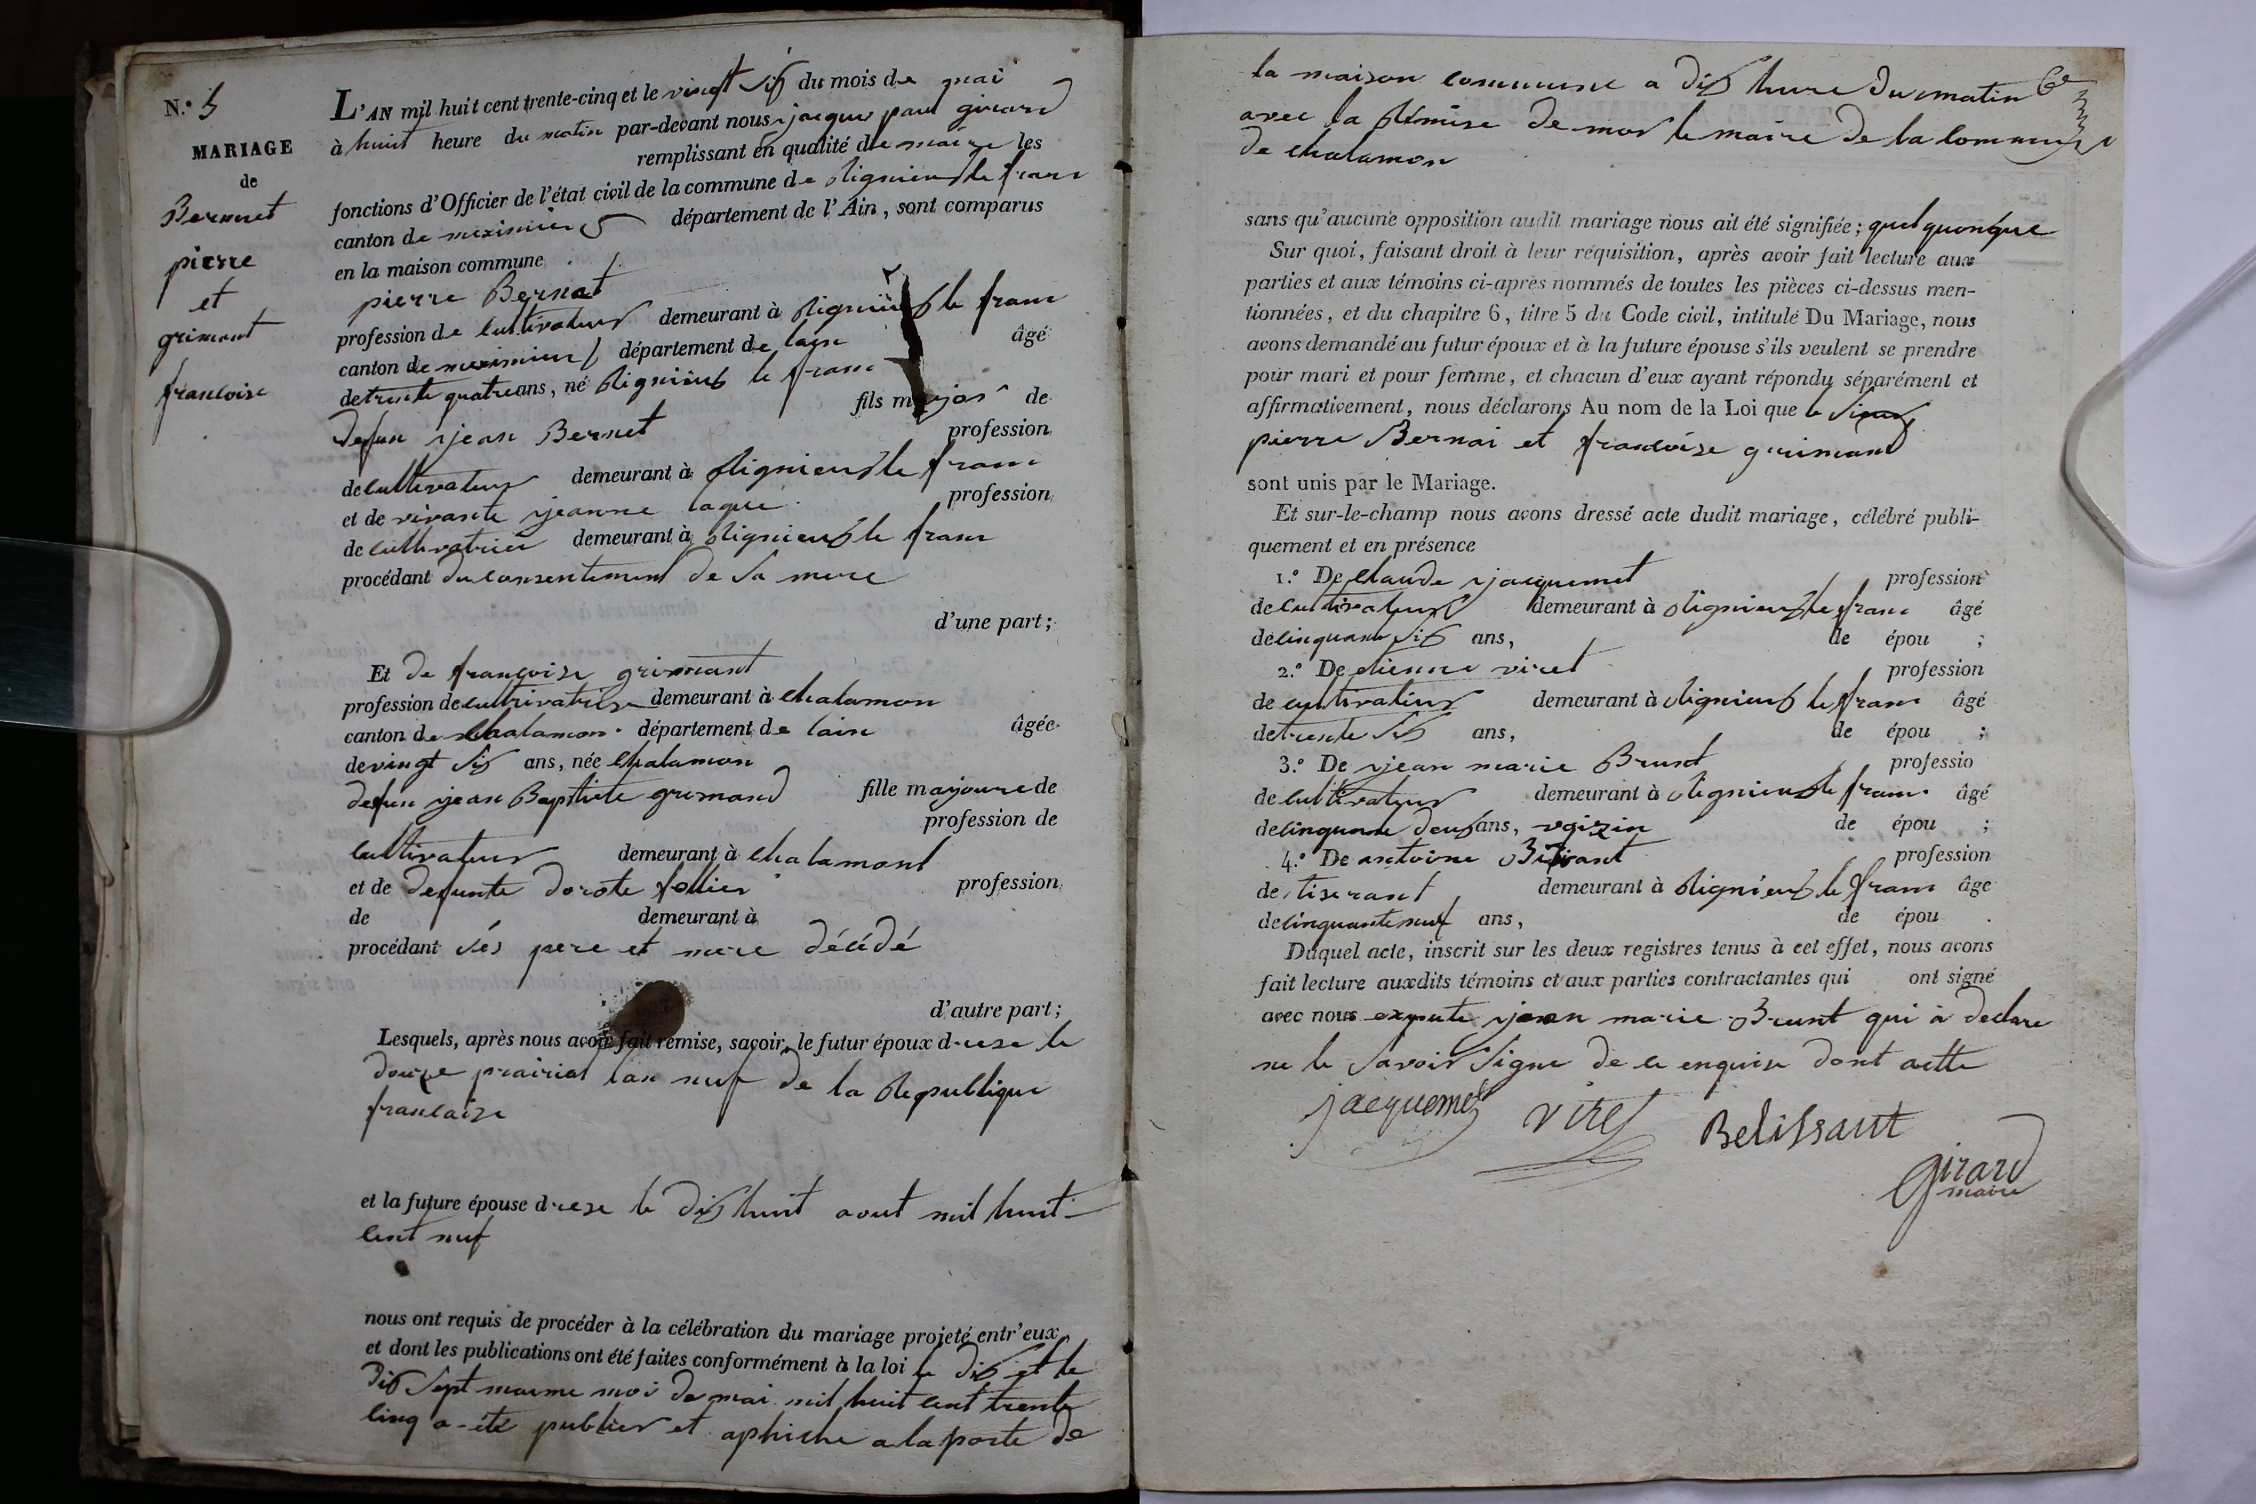 N.º 5
MARIAGE
de
Bernnet
pierre
et
grimant
francoise
L'AN mil huit cent trente-cinq et le vingt six du mois de mai
à huit heure du matin par-devant nous jacque paul girard
remplissant en qualité de maire les
fonctions d'Officier de l'état civil de la commune de Rignieux le franc
canton de meximieux département de l'Ain, sont comparus
en la maison commune
pierre Bernat
profession de cultivateur demeurant à Rignieux le franc
canton de meximieux département de lain âgé
de trente quatre ans, né Rignieux le franc
fils major de
defun jean Bernet profession
de cultivateur demeurant à Rignieux le franc
et de vivante jeanne laque profession
de cultivatrice demeurant à Rignieux le franc
procédant du consentement de sa mere
d'une part;
Et de françoise grimant
profession de cultivatrise demeurant à chalamon
canton de chalamon département de lain âgée
de vingt six ans, née chalamon
fille majoure de
defun jean Baptiste grimand
profession de
cultivateur demeurant à chalamont
et de defunte dorote follier profession
de demeurant à
procédant sés pere et mere décédé
d'autre part;
Lesquels, après nous avoir fait remise, savoir, le futur époux d
douze prairial lan neuf de la Republique
francaize
et la future épouse d le dix huit aout mil huit
cent neuf
nous ont requis de procéder à la célébration du mariage projeté entr'eux
et dont les publications ont été faites conformément à la loi le dix et le
dix sept maime moi de mai mil huit cent trente
cinq a été publier et aphiche a la porte de
la maison commune a dix heure du matin
avec la Remise de mos le maire de la commune
de chalamon
sans qu'aucune opposition audit mariage nous ait été signifiée; quelquonque
Sur quoi, faisant droit à leur réquisition, après avoir fait lecture aux
parties et aux témoins ci-après nommés de toutes les pièces ci-dessus men-
tionnées, et du chapitre 6, titre 5 du Code civil, intitulé Du Mariage, nous
avons demandé au futur époux et à la future épouse s'ils veulent se prendre
pour mari et pour femme, et chacun d'eux ayant répondu séparément et
affirmativement, nous déclarons Au nom de la Loi que le sieur
pierre Bernai et francoise grimand
sont unis par le Mariage.
Et sur-le-champ nous avons dressé acte dudit mariage, célébré publi-
quement et en présence
1.º De Claude jacquemet profession
de cultivateur demeurant à Rignieux le franc âgé
de cinquante six ans, de épou ;
2.º De etienne viret profession
de cultivateur demeurant à Rignieux le franc âgé
de trente six ans, de épou ;
3.º De jean marie Brunt professio
de cultivateur demeurant à Rignieux le franc âgé
de cinquante deux ans, voizin de épou ;
4.º De antoine profession
de tiserant demeurant à Rignieux le franc âge
de cinquante neuf ans, de épou
Duquel acte, inscrit sur les deux registres tenus à cet effet, nous avons
fait lecture auxdits témoins et aux parties contractantes qui ont signé
avec nous jean marie Brunt qui à declare
ne le savoir signe de ce enquise dont actte
jacquemet viret Belissant
girard
maire